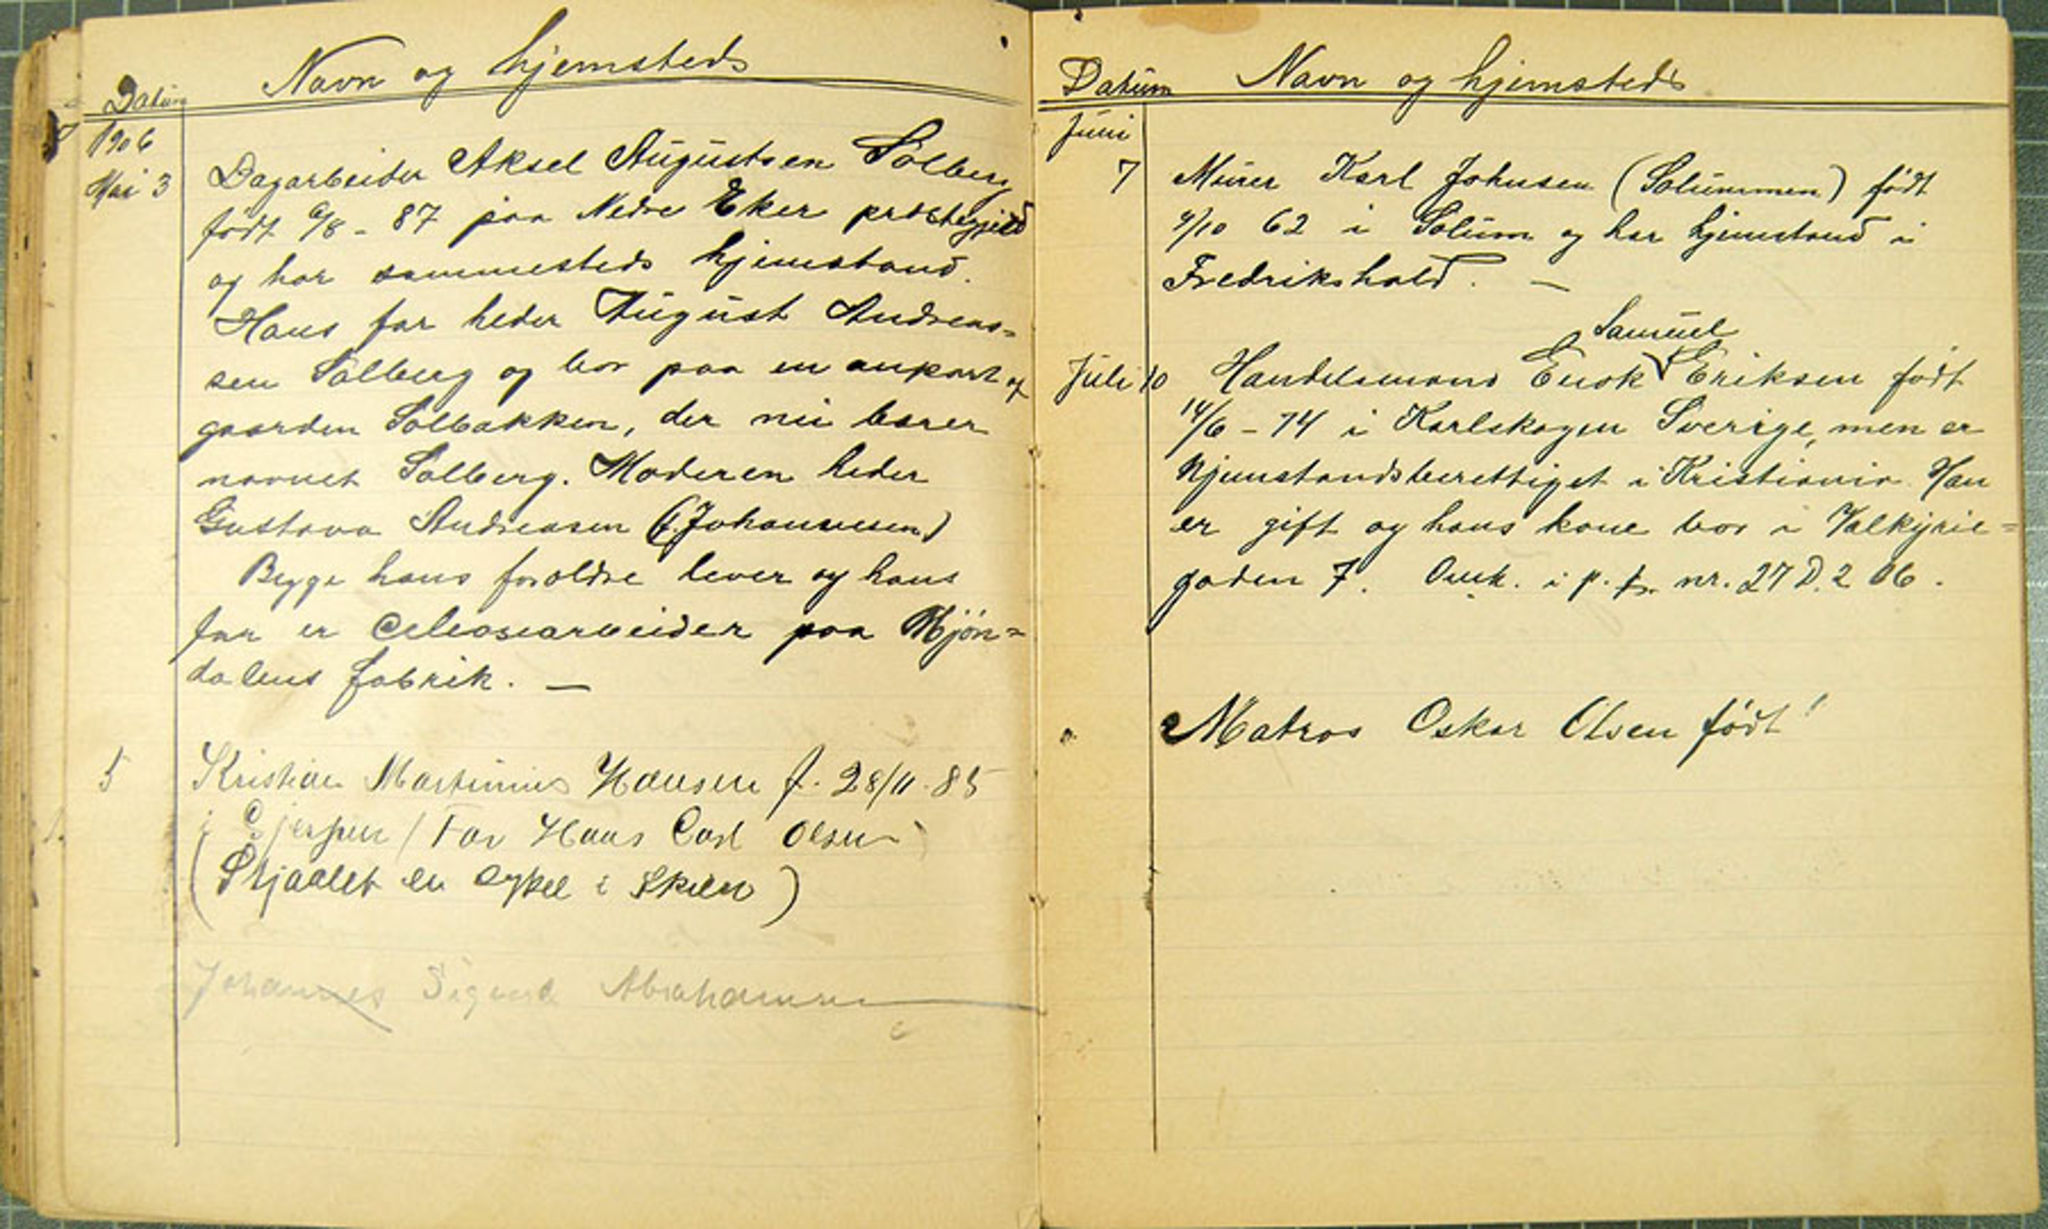 Datum Navn og hjemsteds
1906
Mai 3
Dagarbeider Aksel Augustsen Solberg
født 6/8 - 87 paa Nedre Eker præstegjeld
og har sammesteds hjemstand.
Hans far heder August Andreas=
sen Solberg og bor paa en anpart af
gaarden Solbakken, der nu bærer
navnet Solberg. Moderen heder
Gustava Andreasen (f. Johannesen)
Begge hans forældre lever og hans
far er celosearbeider paa Mjøn=
dalens fabrik. —
5 Kristian Martinius Hansen f. 28/11-85
i Gjerpen / Far Hans Carl Olsen
(Stjaalet en cykel i Skien)
Johannes Sigurd Abrahamsen
Datum Navn og hjemsteds
Juni
7 Murer Karl Johnsen (Solummen) født
9/10 62 i Solum og har hjemstand i
Fredrikshald. —
Samuel
Juli 10 Handelsmand Enok Eriksen født
14/6 - 74 i Karlskogen Sverige, men er
hjemstandsberettiget i Kristiania. Han
er gift og hans kone bor i Valkyrie=
gaden 7. Omh. i p. nr. 27 D. 2 06.
Matros Oskar Olsen født